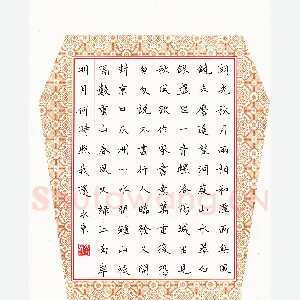 湖光秋月兩相和潭面無風
鏡未磨遙望洞庭山水翠白
銀盤裏一青螺洛陽城里見
秋風欲作家書意萬重復恐
匆匆說不盡行人臨發又開
封京口瓜洲一水間鍾山只
隔數重山春風又綠江南岸
明月何時照我還